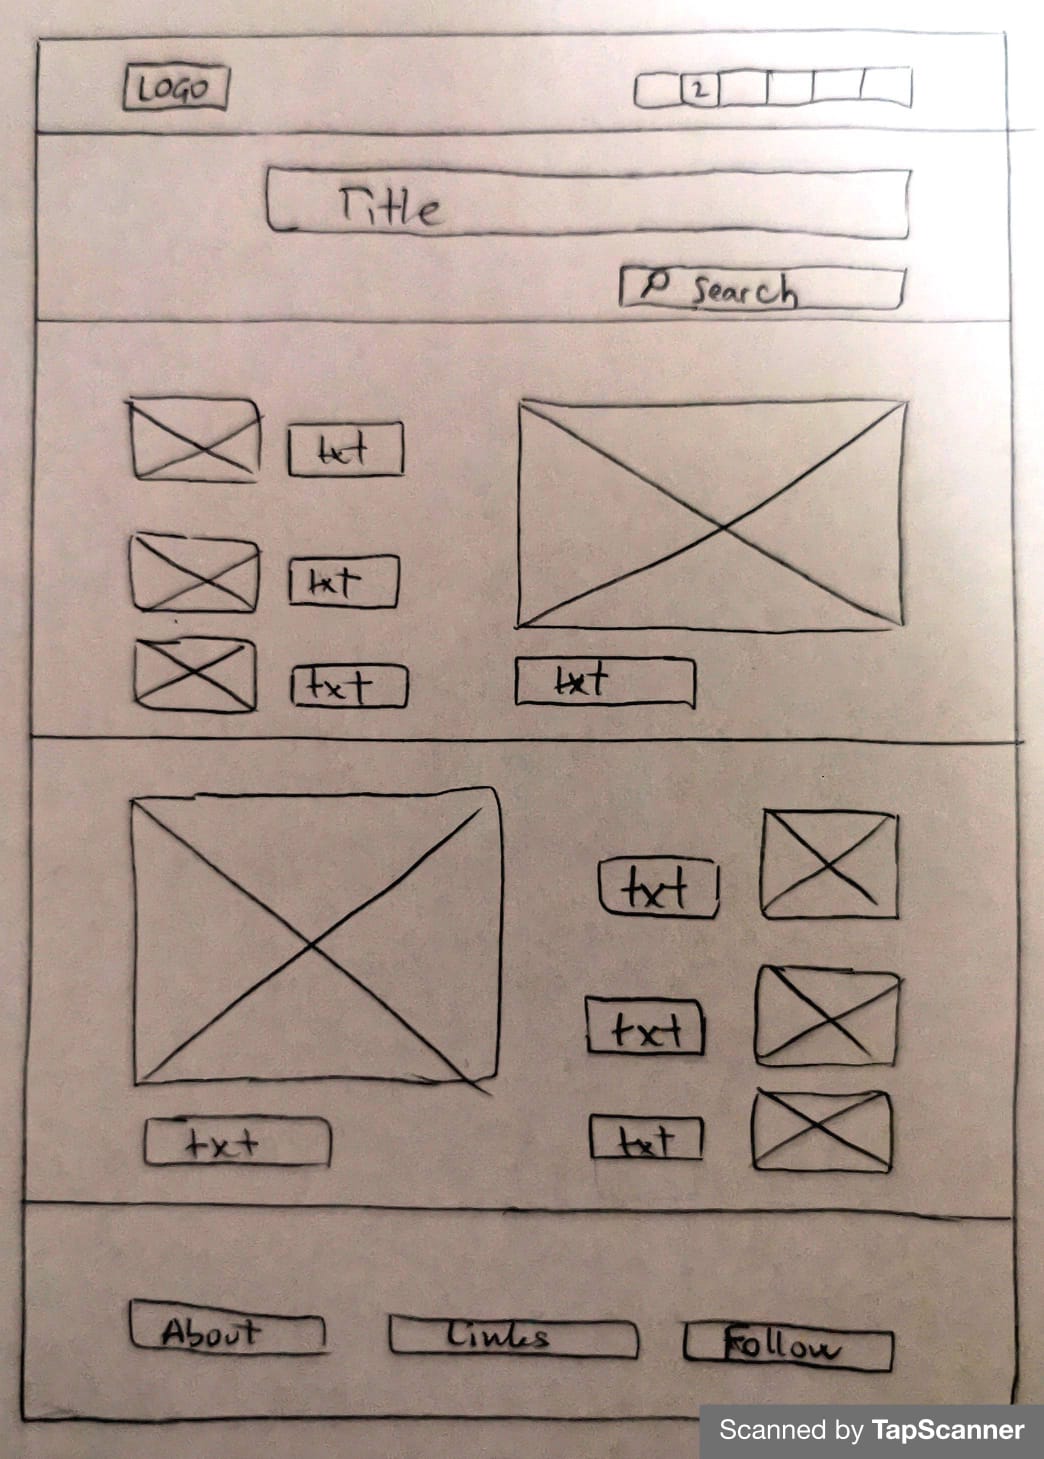 LOGO
2
Title
Search
txt
txt
txt
txt
txt
txt
txt
txt
About
Links
Follow
Scanned by TapScanner